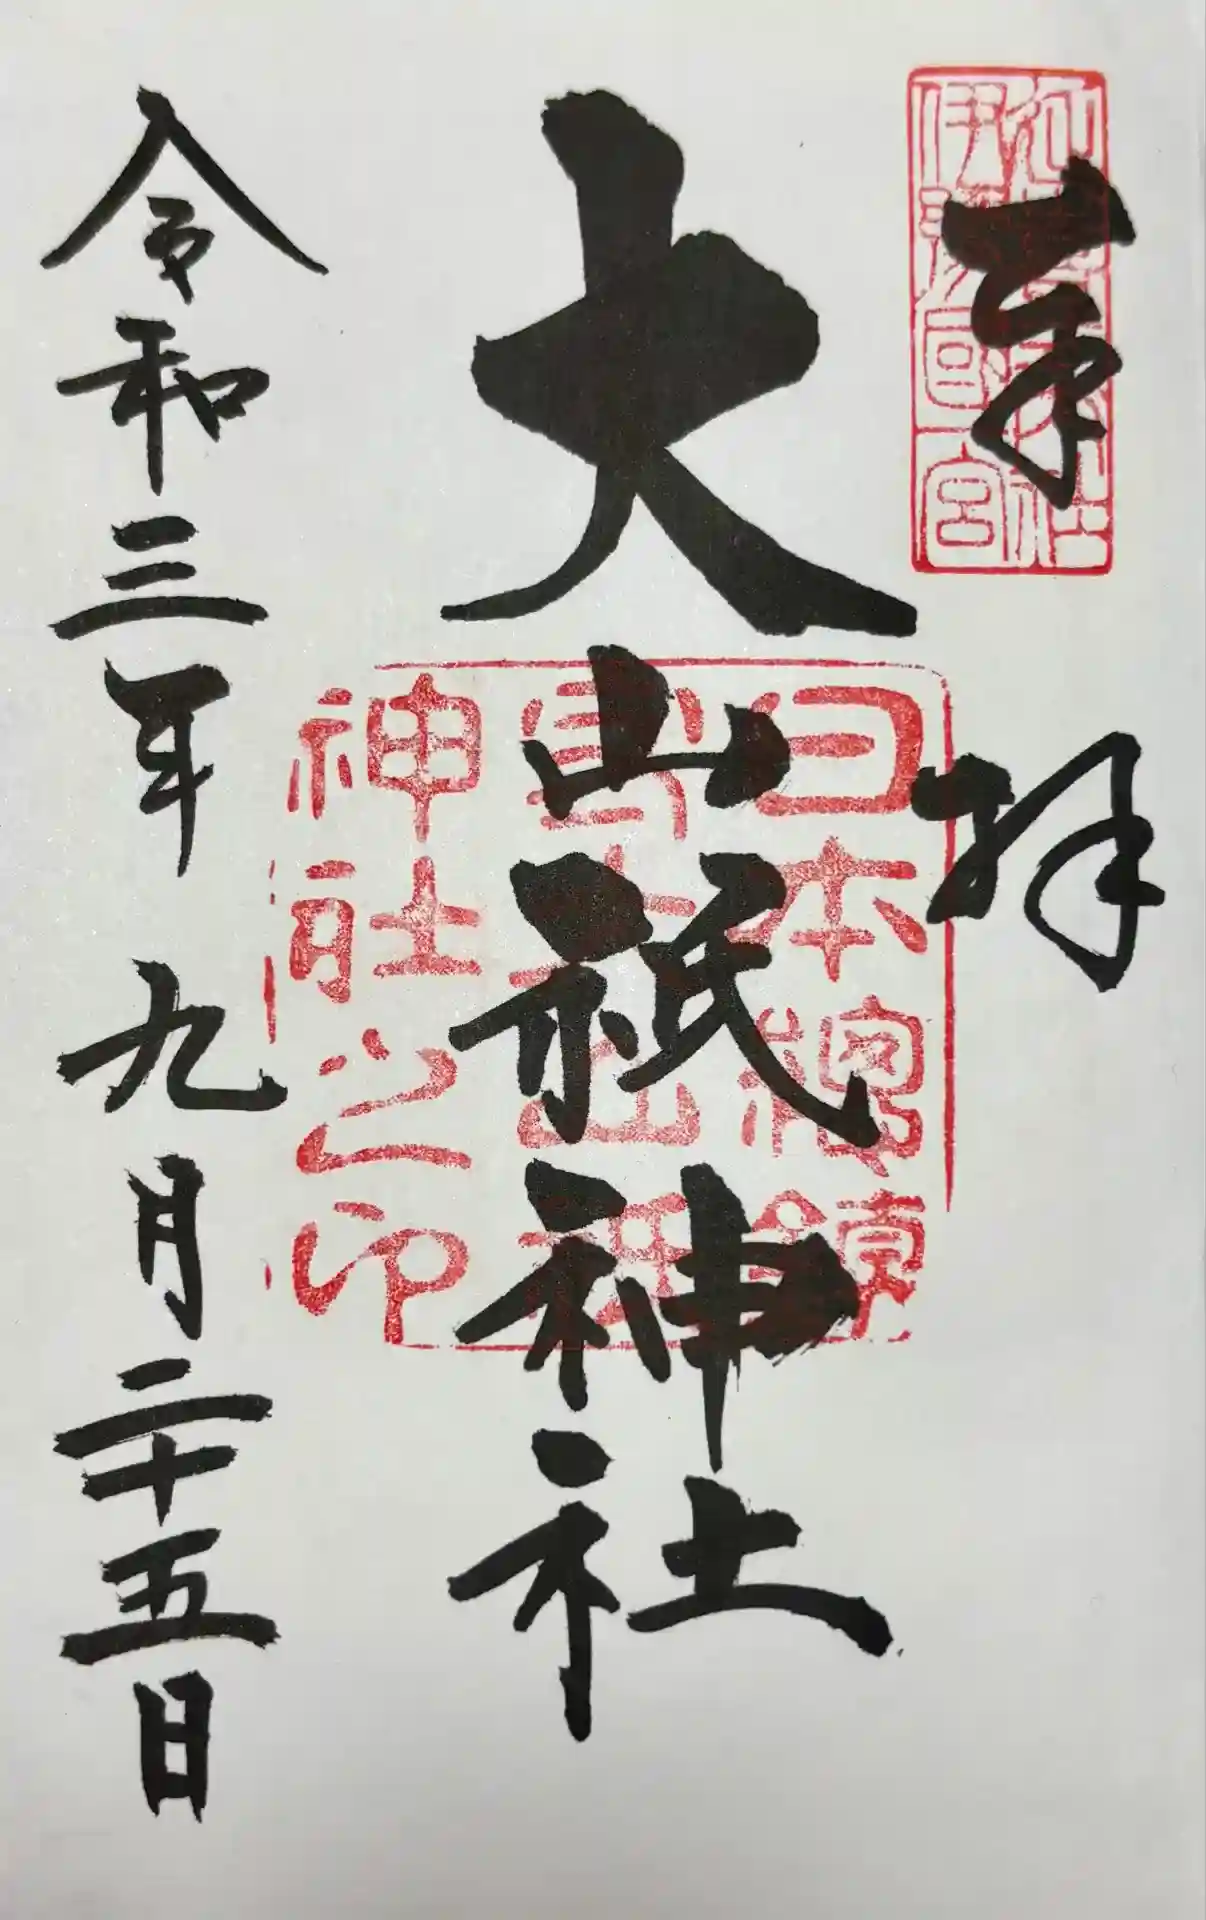 奉拝
伊豫國一宮
日本總鎮
大山祇神社
神社之印
令和三年九月二十五日